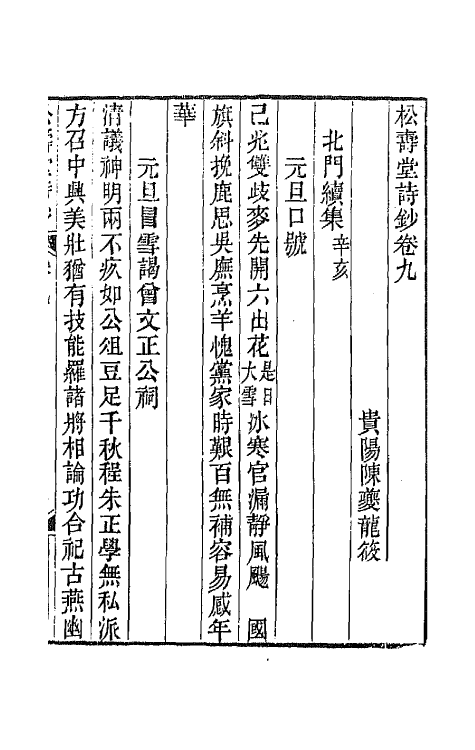 松壽堂詩鈔卷九
貴陽陳夔龍筱石
北門續集辛亥
元旦口號
己兆雙歧麥先開六出花是日大雪冰寒官漏靜風颺　國
旗斜挽鹿思吳廡烹羊愧黨家時艱百無補容易感年
華
元旦冒雪謁曾文正公祠
清議神明兩不疚如公俎豆足千秋程朱正學無私派
方召中興美壯猶有技能羅諸將相論功合祀古燕幽